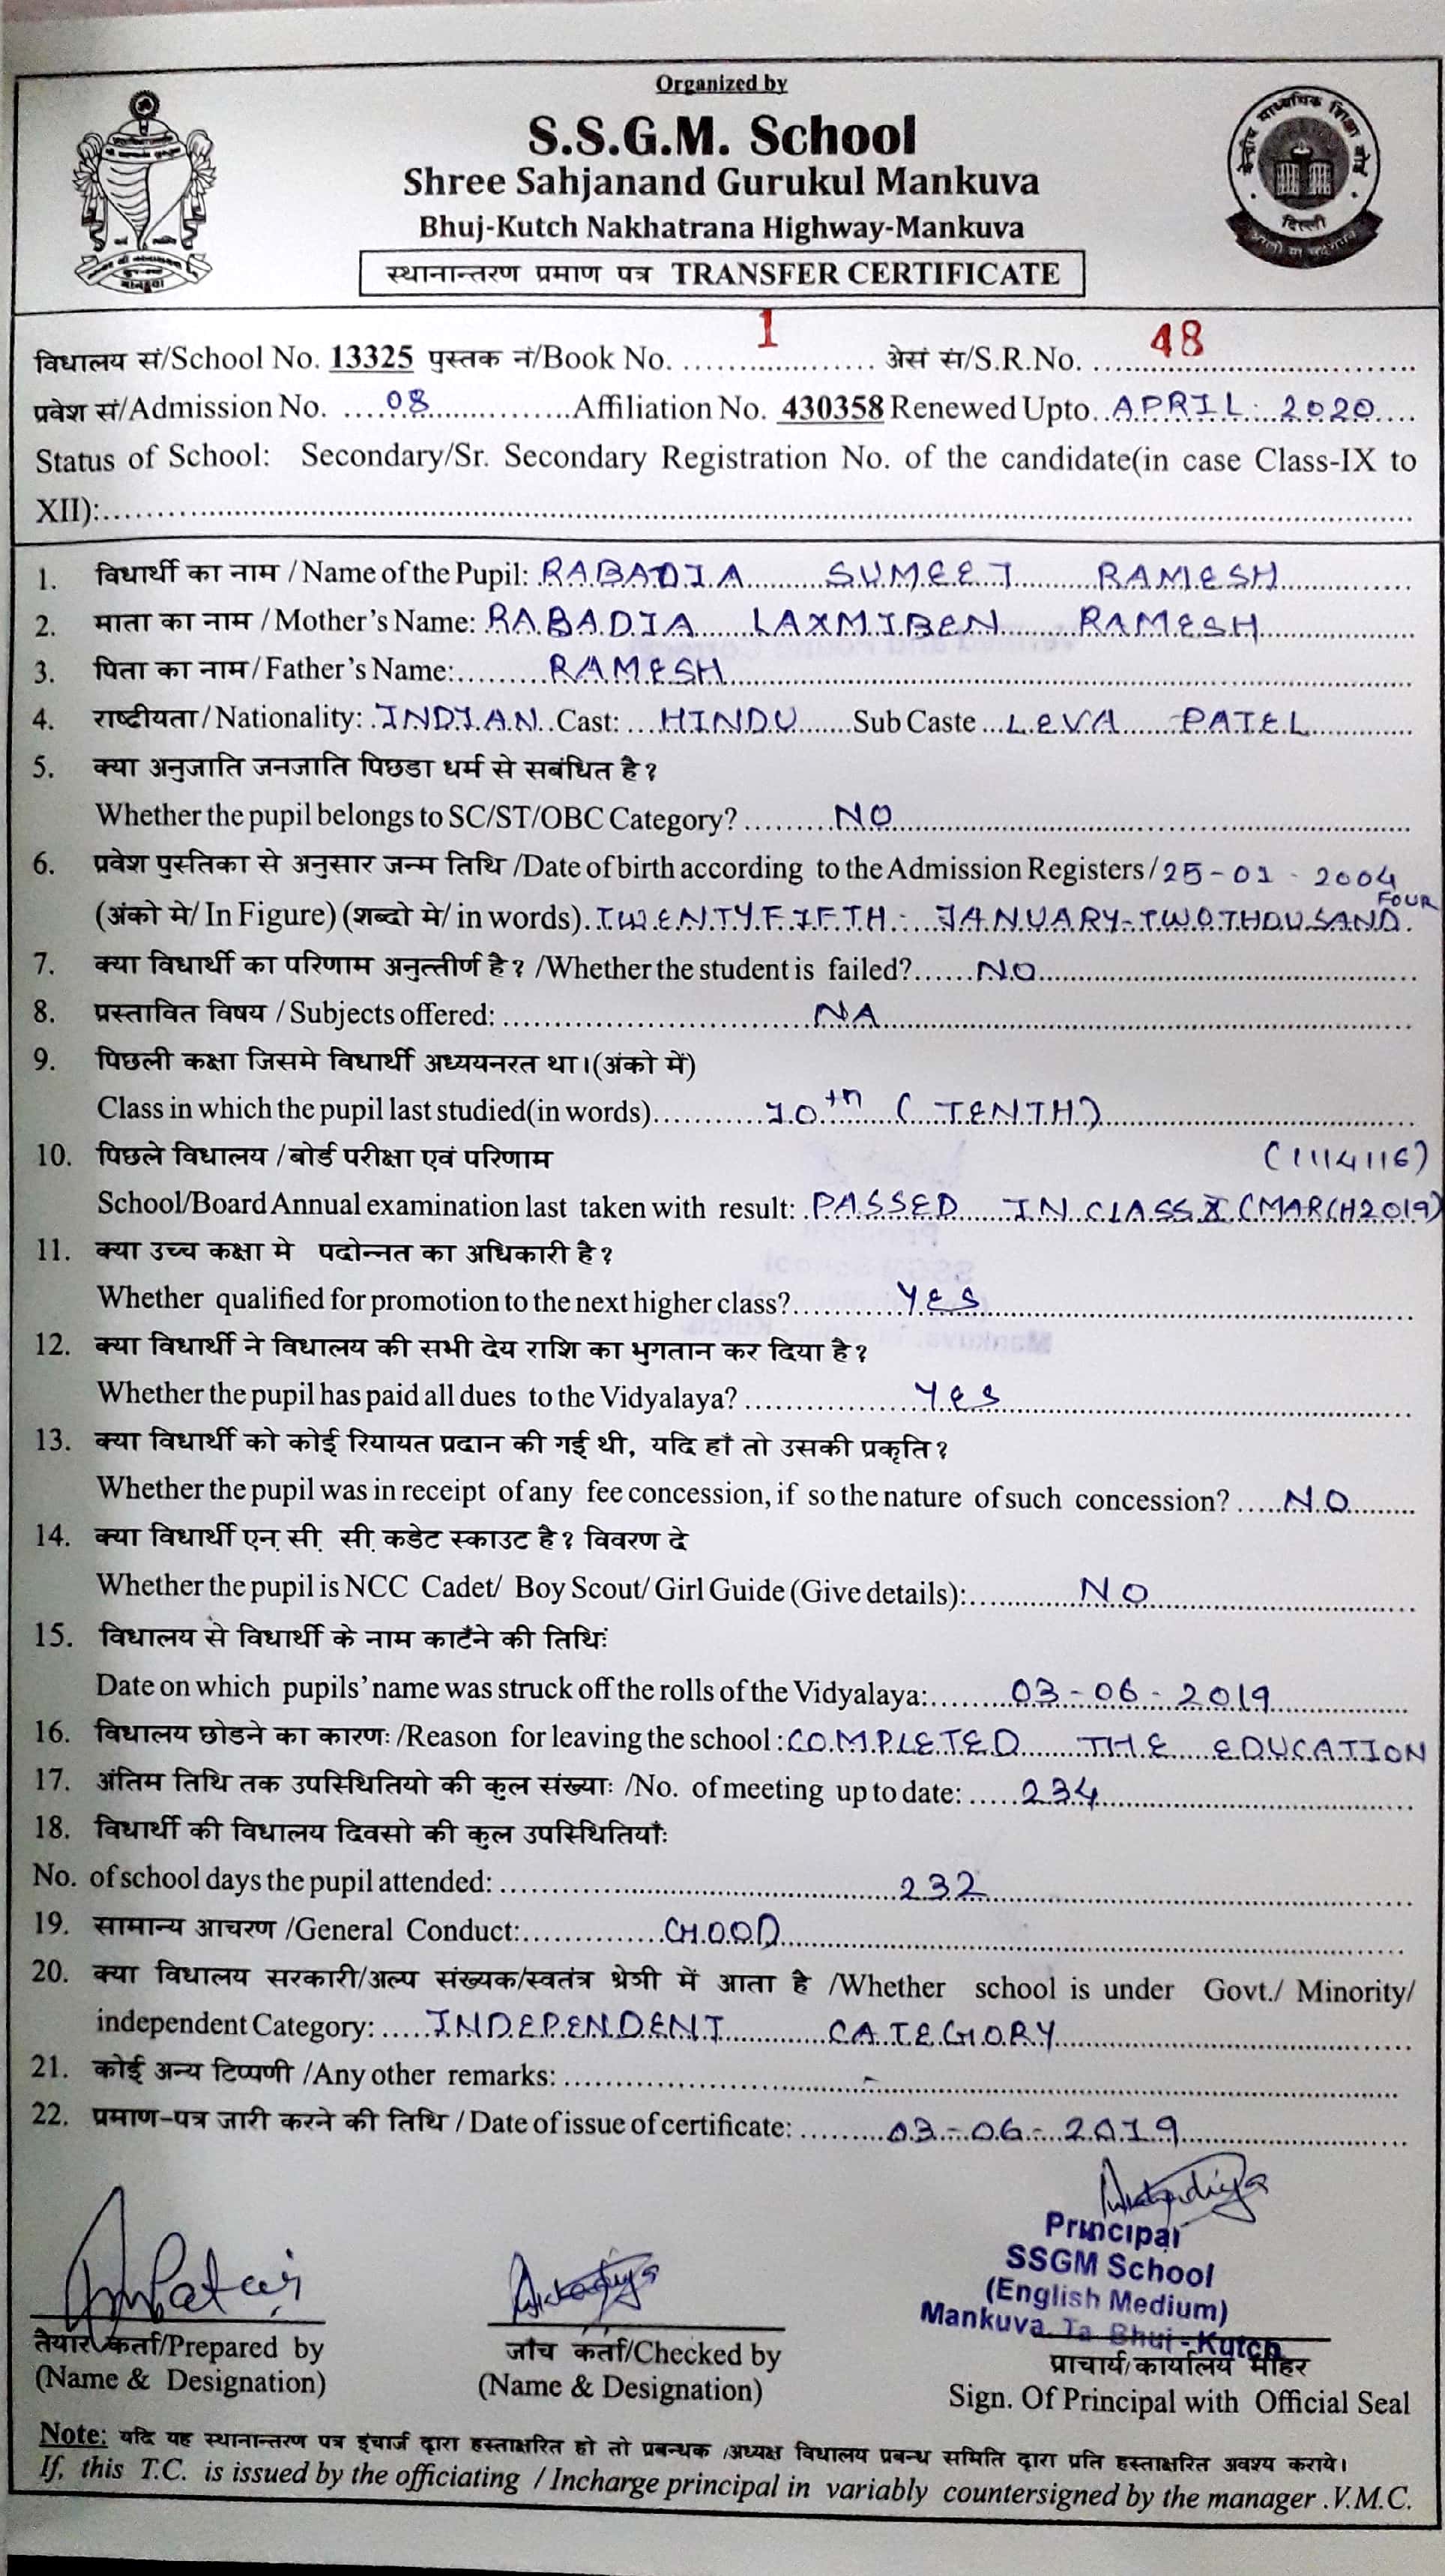 Organized by
S.S.G.M. School
Shree Sahjanand Gurukul Mankuva
Bhuj-Kutch Nakhatrana Highway-Mankuva
स्थानान्तरण प्रमाण पत्र TRANSFER CERTIFICATE
केन्द्रीय माध्यमिक शिक्षा बोर्ड
दिल्ली
विधालय सं/School No. 13325 पुस्तक नं/Book No. 1 अेसं सं/S.R.No. 48
प्रवेश सं/Admission No. 08 Affiliation No. 430358 Renewed Upto APRIL 2020
Status of School: Secondary/Sr. Secondary Registration No. of the candidate(in case Class-IX to
XII):
1. विधार्थी का नाम / Name of the Pupil: RABADIA SUMEET RAMESH
2. माता का नाम / Mother's Name: RABADIA LAXMIBEN RAMESH
3. पिता का नाम / Father's Name: RAMESH
4. राष्टीयता / Nationality: INDIAN Cast: HINDU Sub Caste LEVA PATEL
5. क्या अनुजाति जनजाति पिछडा धर्म से सबंधित है?
Whether the pupil belongs to SC/ST/OBC Category? NO
6. प्रवेश पुस्तिका से अनुसार जन्म तिथि /Date of birth according to the Admission Registers / 25-01-2004
(अंको मे/ In Figure) (शब्दो मे/ in words) TWENTYFIFTH - JANUARY-TWO THOUSAND FOUR
7. क्या विधार्थी का परिणाम अनुत्तीर्ण है? /Whether the student is failed? NO
8. प्रस्तावित विषय / Subjects offered: NA
9. पिछली कक्षा जिसमे विधार्थी अध्ययनरत था।(अंको में)
Class in which the pupil last studied(in words) 10th (TENTH)
10. पिछले विधालय /बोर्ड परीक्षा एवं परिणाम (11141116)
School/Board Annual examination last taken with result: PASSED IN CLASS X (MARCH2019)
11. क्या उच्च कक्षा मे पदोन्नत का अधिकारी है?
Whether qualified for promotion to the next higher class? YES
12. क्या विधार्थी ने विधालय की सभी देय राशि का भुगतान कर दिया है?
Whether the pupil has paid all dues to the Vidyalaya? YES
13. क्या विधार्थी को कोई रियायत प्रदान की गई थी, यदि हाँ तो उसकी प्रकृति?
Whether the pupil was in receipt of any fee concession, if so the nature of such concession? NO
14. क्या विधार्थी एन. सी. सी. कडेट स्काउट है? विवरण दे
Whether the pupil is NCC Cadet/ Boy Scout/ Girl Guide (Give details): NO
15. विधालय से विधार्थी के नाम काटँने की तिथिः
Date on which pupils' name was struck off the rolls of the Vidyalaya: 03-06-2019
16. विधालय छोडने का कारणः /Reason for leaving the school : COMPLETED THE EDUCATION
17. अंतिम तिथि तक उपस्थितियो की कुल संख्याः /No. of meeting up to date: 234
18. विधार्थी की विधालय दिवसो की कुल उपस्थितियाँः
No. of school days the pupil attended: 232
19. सामान्य आचरण /General Conduct: GOOD
20. क्या विधालय सरकारी/अल्प संख्यक/स्वतंत्र श्रेत्री में आता है /Whether school is under Govt./ Minority/
independent Category: INDEPENDENT CATEGORY
21. कोई अन्य टिप्पणी /Any other remarks: -
22. प्रमाण-पत्र जारी करने की तिथि / Date of issue of certificate: 03-06-2019
Principal
SSGM School
(English Medium)
Mankuva, Ta Bhuj - Kutch
तैयार कर्ता/Prepared by
(Name & Designation)
जाँच कर्ता/Checked by
(Name & Designation)
प्राचार्य/कार्यालय मोहर
Sign. Of Principal with Official Seal
Note: यदि यह स्थानान्तरण पत्र इंचार्ज द्वारा हस्ताक्षरित हो तो प्रबन्धक /अध्यक्ष विधालय प्रबन्ध समिति द्वारा प्रति हस्ताक्षरित अवश्य कराये।
If, this T.C. is issued by the officiating / Incharge principal in variably countersigned by the manager .V.M.C.